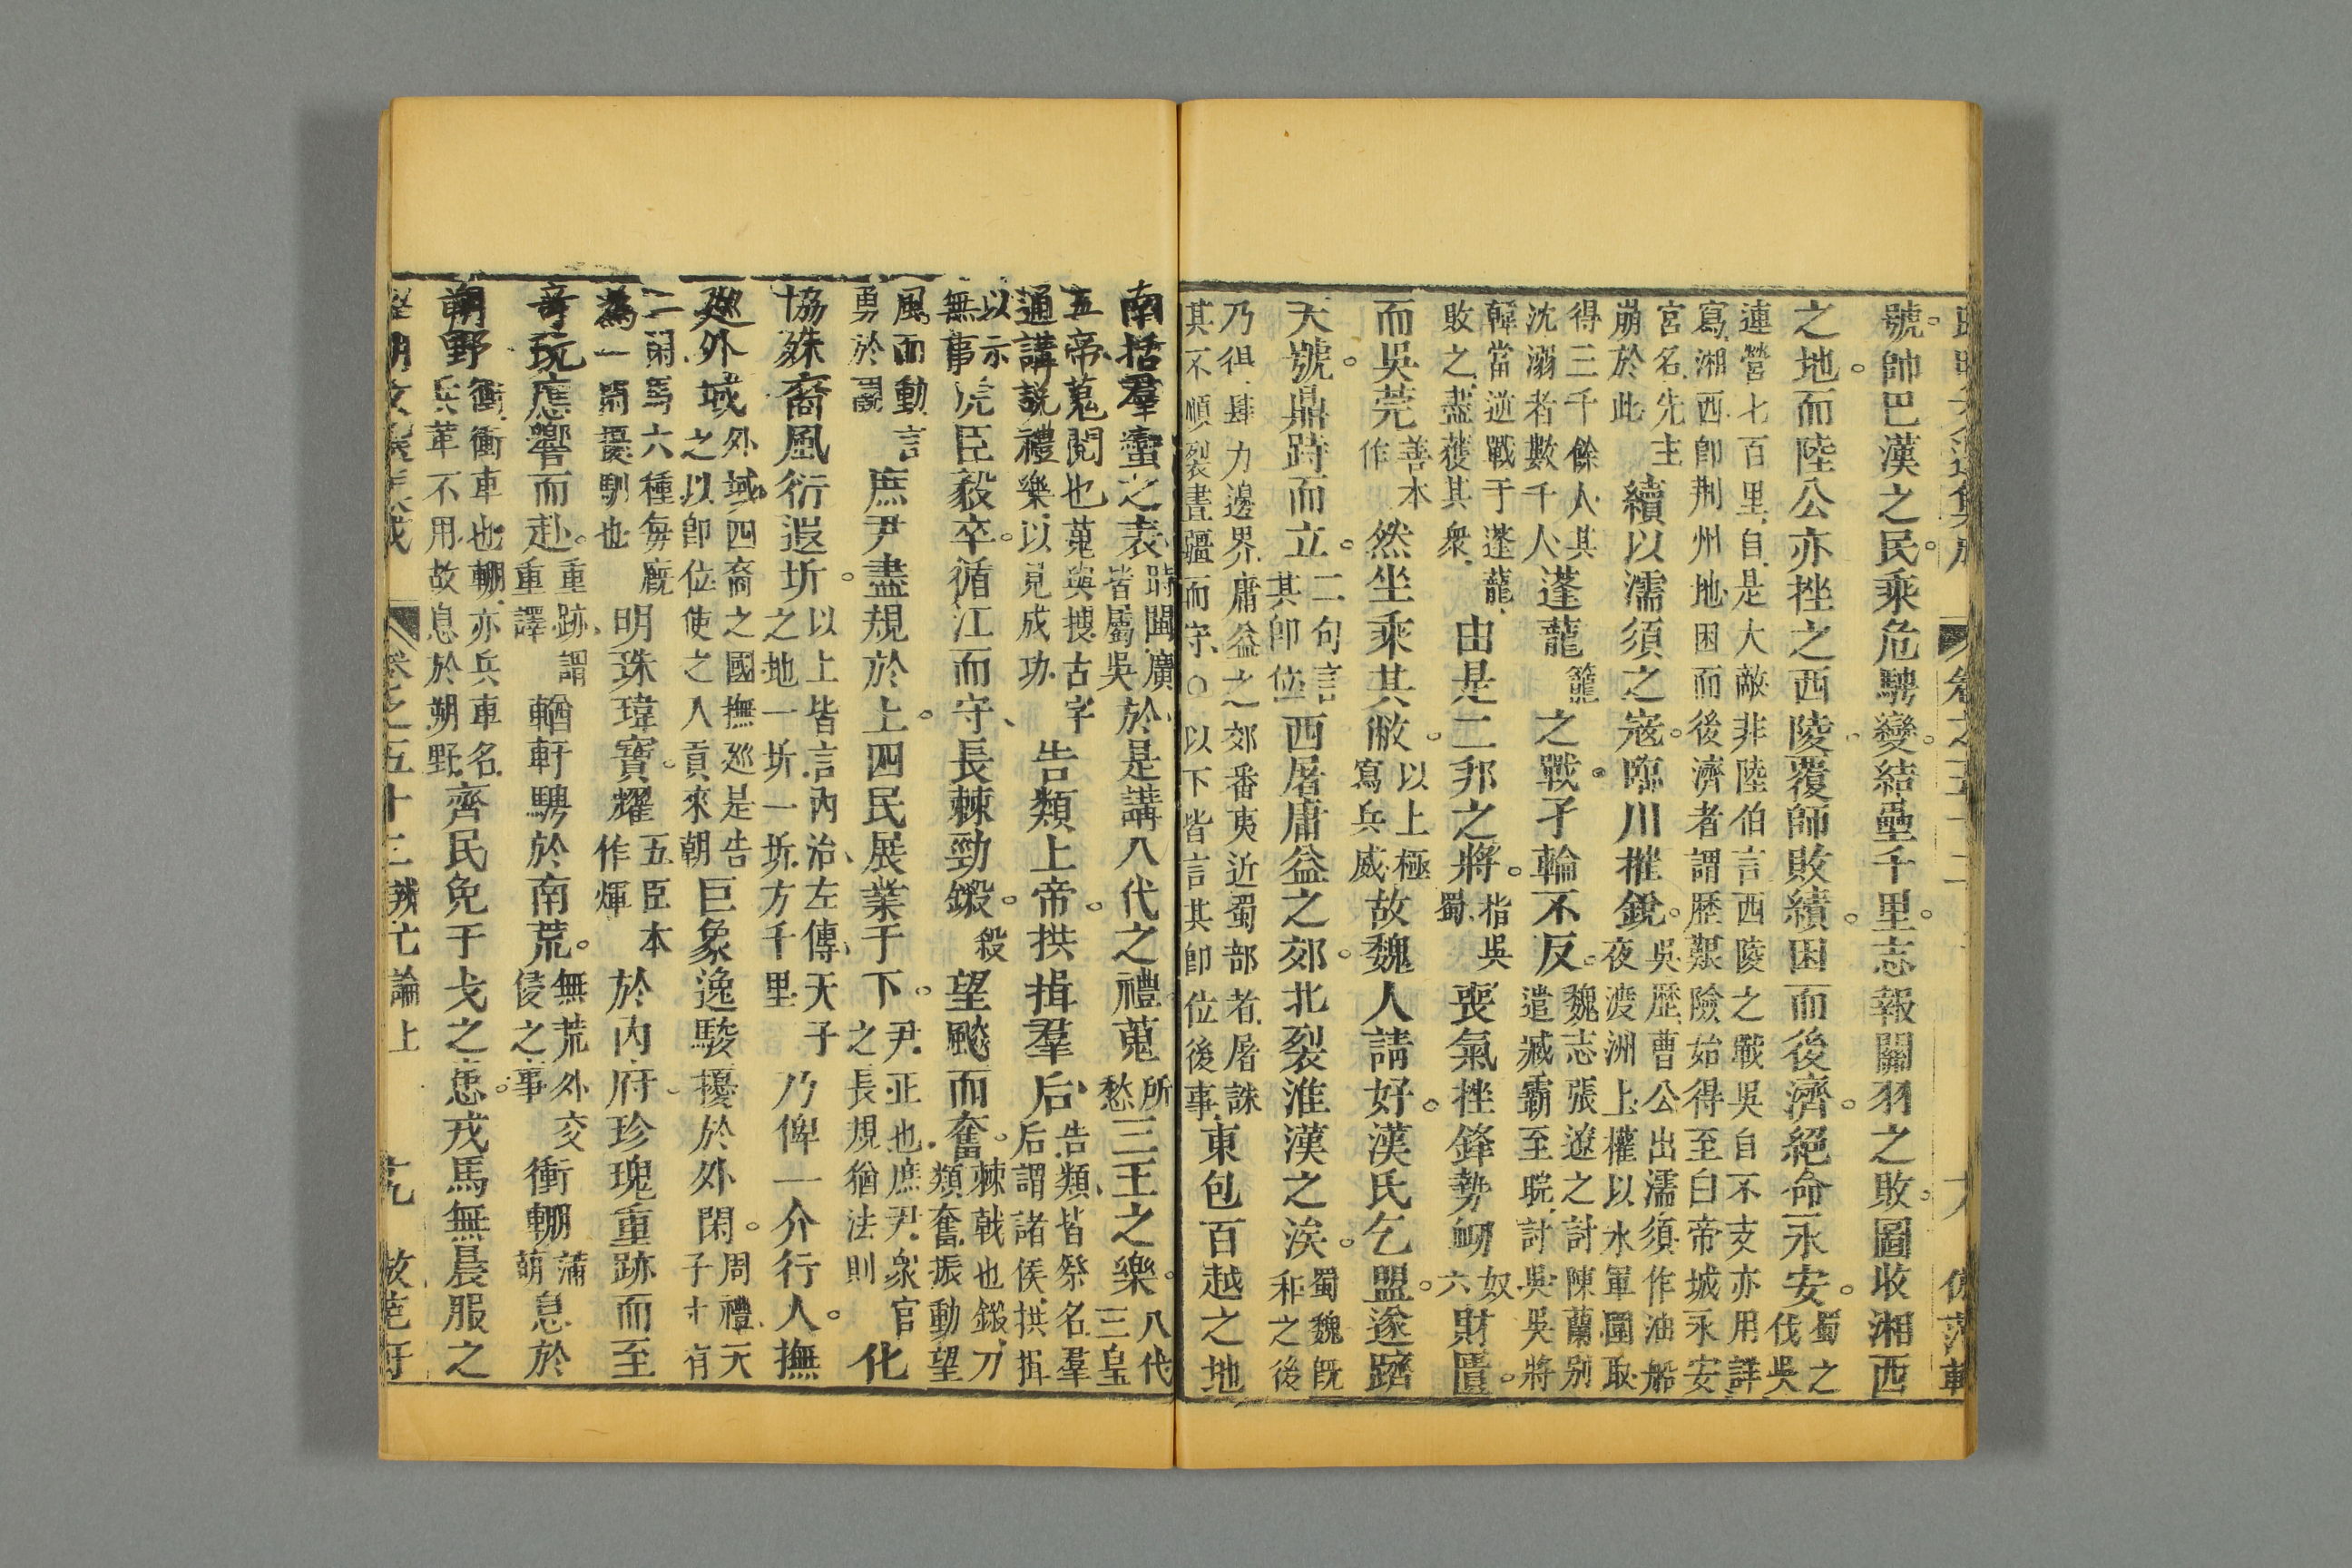 號。帥巴漢之民。乘危騁變。結壘千里。志報關羽之敗。圖收湘西
之地。而陸公亦挫之西陵。覆師敗績。困而後濟。絕命永安。蜀之伐吳
連營七百里、自是大敵、非陸伯言西陵之戰、吳自不支、亦用詳
寫、湘西、卽荆州地、困而後濟者、謂歷艱險、始得至白帝城、永安
宮名、先主崩於此、續以濡須之寇。臨川摧銳。吳歷、曹公出濡須、作油船夜渡洲上、權以水軍圍取
得三千餘人、其沈溺者數千人、蓬蘢籠之戰。孑輪不反。魏志、張遼之討陳蘭、別遣臧霸至皖、討吳、吳將
韓當逆戰于蓬蘢、敗之、盡獲其衆、由是二邦之將。指吳蜀喪氣挫鋒。勢衂奴六財匱。
而吳莞善本作然坐乘其敝。以上極寫兵威故魏人請好。漢氏乞盟。遂躋
天號。鼎跱而立。二句言其卽位西屠庸益之郊。北裂淮漢之涘。蜀魏旣和之後
乃徂、肆力邊界、庸益之郊、番夷近蜀部者、屠誅
其不順、裂畫疆而守、○以下皆言其卽位後事、東包百越之地
南括羣蠻之表、時閩廣皆屬吳於是講八代之禮。蒐所愁三王之樂。八代三皇
五帝、蒐閱也、蒐與搜古字通、講說禮樂、以見成功、告類上帝。拱揖羣后、告類、皆祭名、羣后謂諸侯、拱揖
以示無事、虎臣毅卒。循江而守、長棘勁鎩。殺望飈而奮。棘戟也、鎩、刀類、奮、振動、望
風而動、言勇於戰鬭庶尹盡規於上。四民展業于下。尹、正也、庶尹、衆官之長、規、猶法則化
協殊裔。風衍遐圻。以上皆言內治、左傳、天子之地一圻、一圻、方千里、乃俾一介行人。撫
巡外域外域、四裔之國、撫巡、是告之以卽位、使之人貢來朝巨象逸駿。擾於外閑。周禮、天子十有
二閑、馬六種、每廐爲一閑、擾、馴也、明珠瑋寶。耀五臣本作煇於內府。珍瑰重跡而至
奇玩應響而赴。重跡、謂重譯輶軒騁於南荒。無荒外交侵之事衝輣蒲萌息於
朔野衝、衝車也、輣、亦兵車名、兵革不用、故息於朔野、齊民免干戈之患。戎馬無晨服之
卷之五十三 辨亡論上